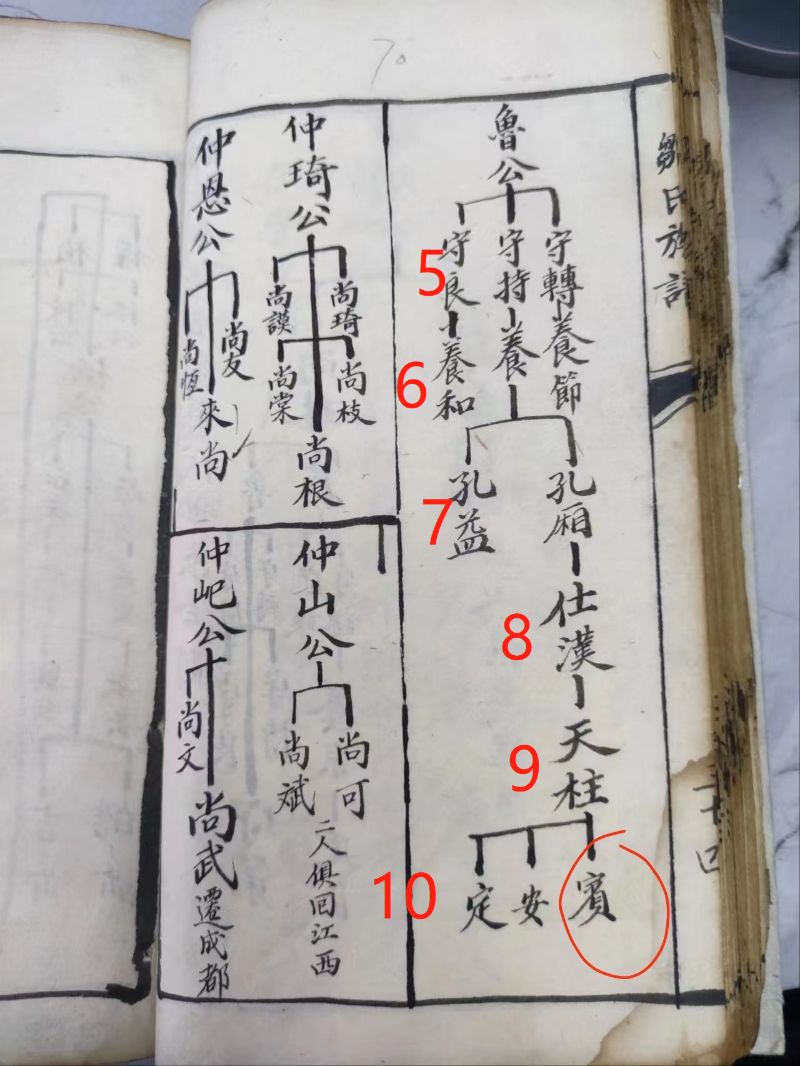 70
鄒氏族譜
二十四
魯公
守轉
守持
守良
養節
養
養和
孔廂
孔益
仕漢
天柱
賓
安
定
5
6
7
8
9
10
仲琦公
尚琦
尚謨
尚枝
尚棠
尚根
仲恩公
尚友
尚恆
來尚
仲山公
尚可
尚斌
二人俱回江西
仲屺公
尚文
尚武遷成都